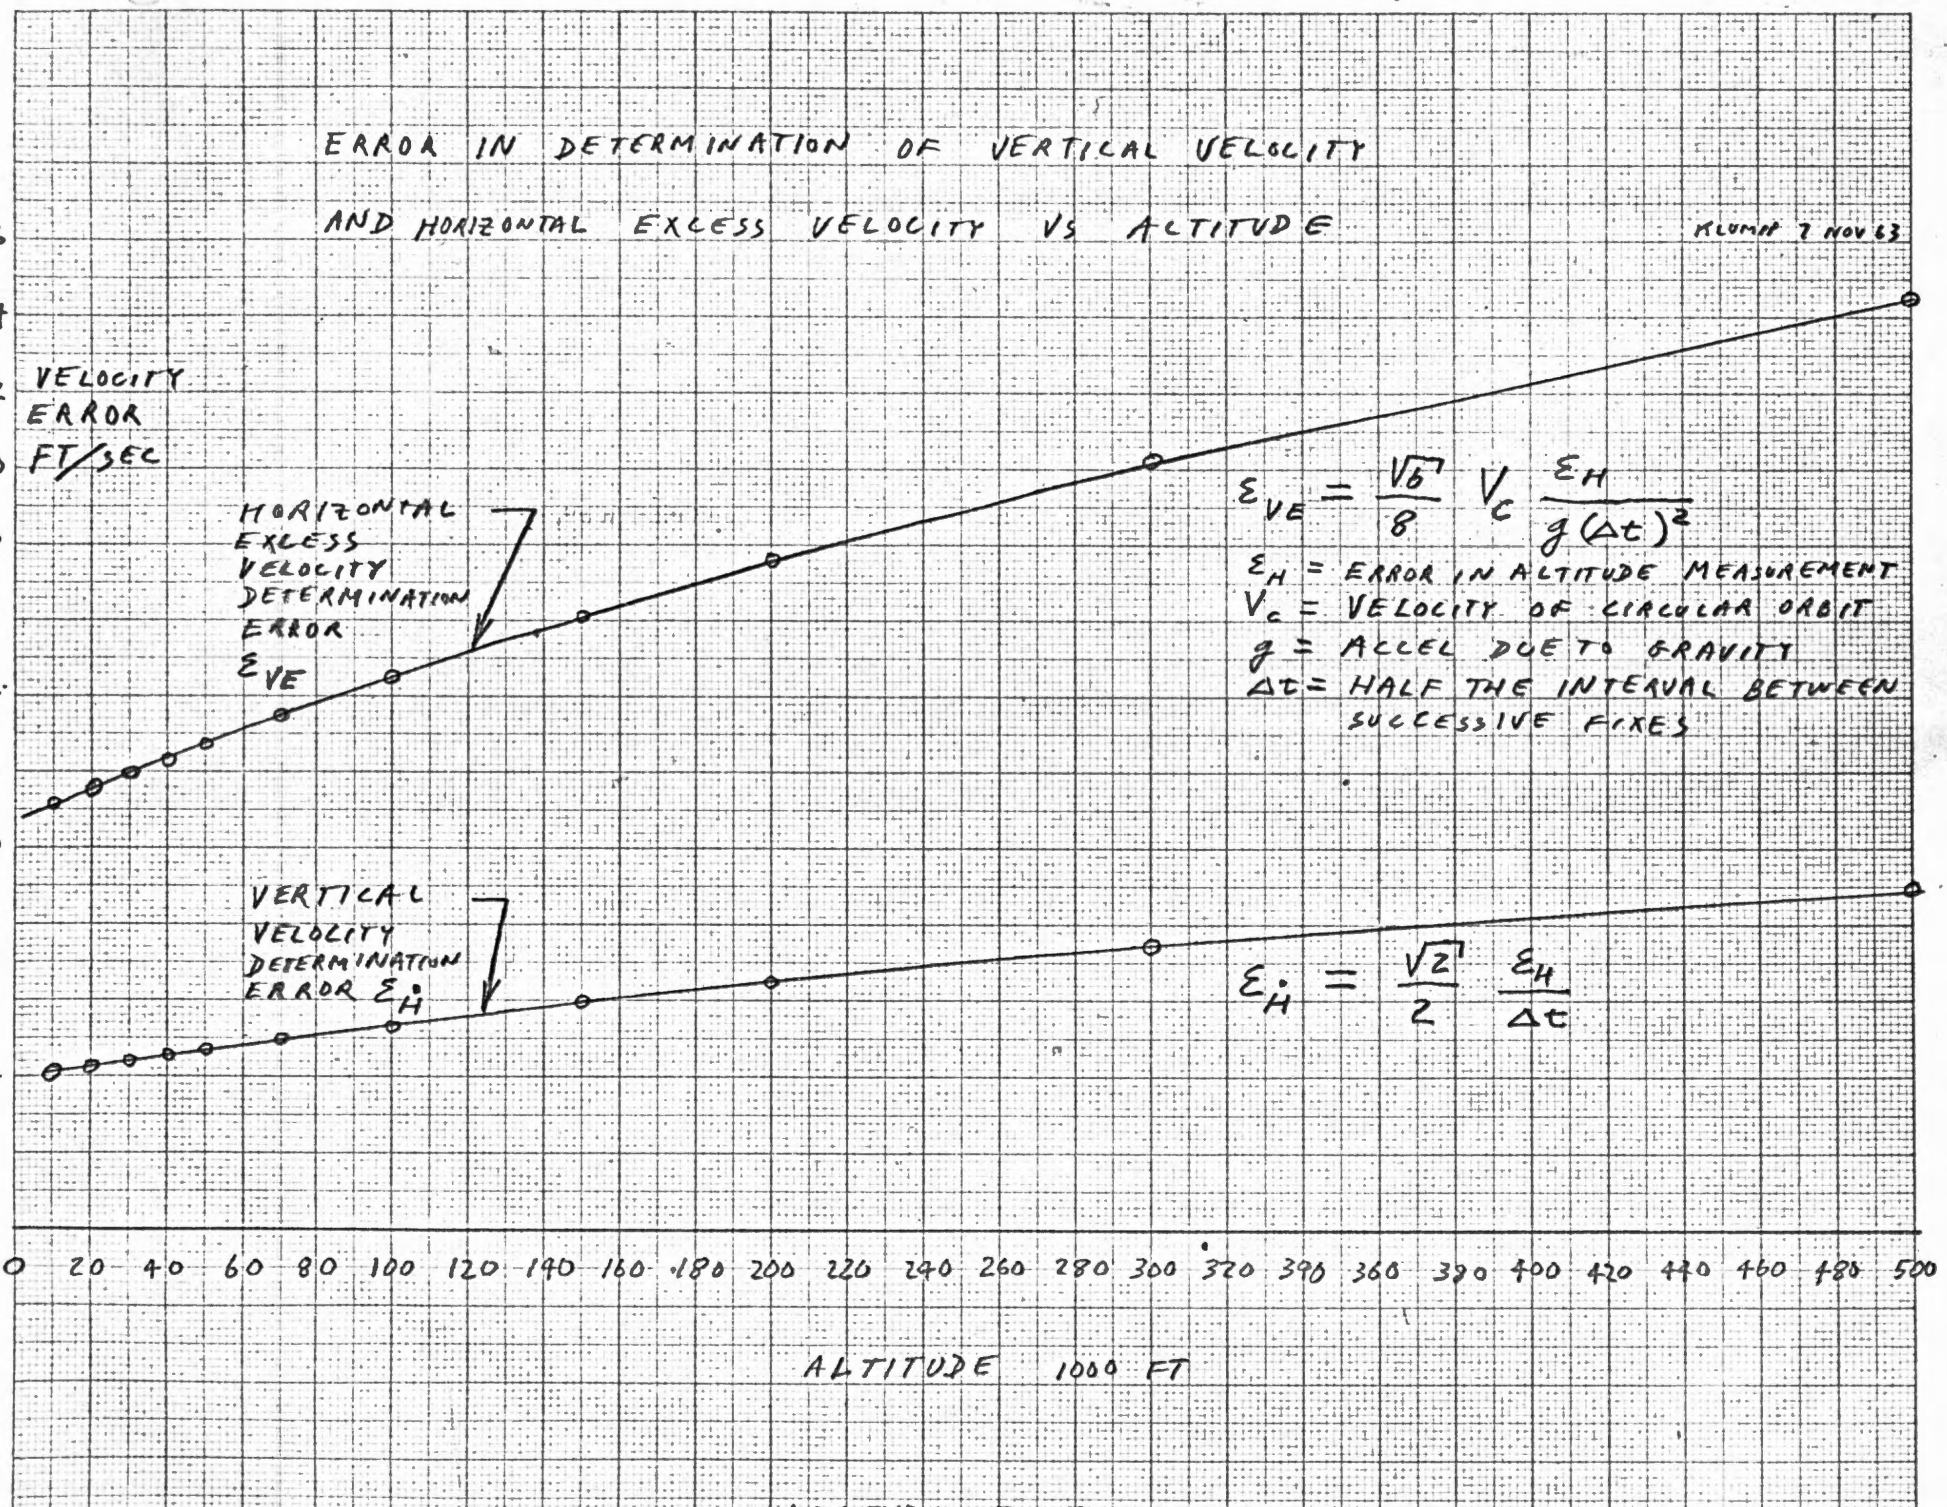 ERROR IN DETERMINATION OF VERTICAL VELOCITY
AND HORIZONTAL EXCESS VELOCITY VS ALTITUDE
KLUMPP 7 NOV 63
VELOCITY
ERROR
FT/SEC
HORIZONTAL
EXCESS
VELOCITY
DETERMINATION
ERROR
ε_VE
ε_VE = √6/8 V_c ε_H/g(Δt)²
ε_H = ERROR IN ALTITUDE MEASUREMENT
V_c = VELOCITY OF CIRCULAR ORBIT
g = ACCEL DUE TO GRAVITY
Δt = HALF THE INTERVAL BETWEEN
SUCCESSIVE FIXES
VERTICAL
VELOCITY
DETERMINATION
ERROR ε_Ḣ
ε_Ḣ = √2/2 ε_H/Δt
0 20 40 60 80 100 120 140 160 180 200 220 240 260 280 300 320 340 360 380 400 420 440 460 480 500
ALTITUDE 1000 FT